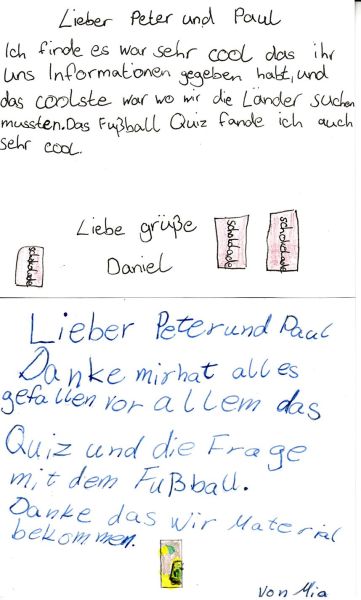 Lieber Peter und Paul
Ich finde es war sehr cool das ihr
uns Informationen gegeben habt, und
das coolste war wo wir die Länder suchen
mussten. Das Fußball Quiz fande ich auch
sehr cool.
Liebe grüße
Daniel
schokolade
schokolade
schokolade
Lieber Peter und Paul
Danke mir hat alles
gefallen vor allem das
Quiz und die Frage
mit dem Fußball.
Danke das wir Material
bekommen.
von Mia